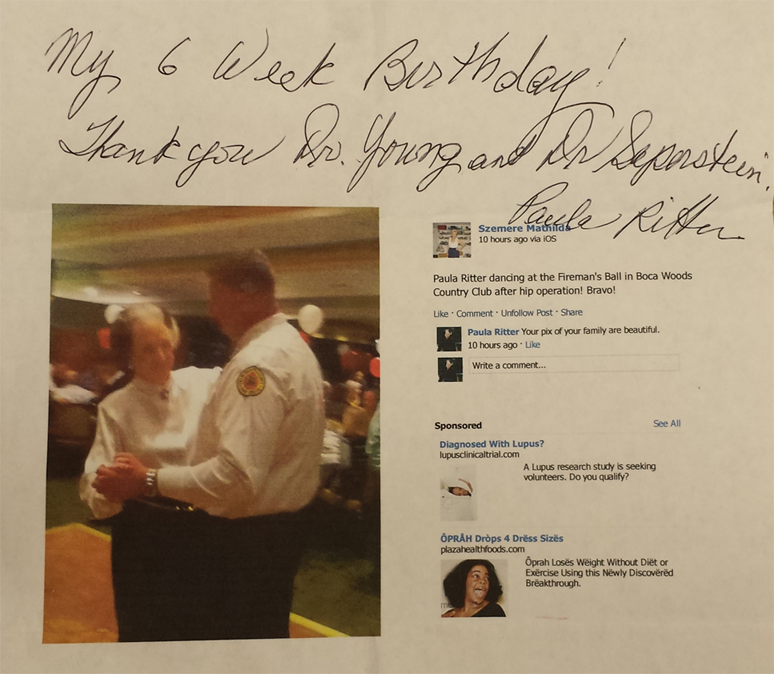 My 6 Week Birthday!
Thank you Dr. Young and Dr Seperstein.
Paula Ritter
Szemere Mathilda
10 hours ago via iOS
Paula Ritter dancing at the Fireman's Ball in Boca Woods
Country Club after hip operation! Bravo!
Like · Comment · Unfollow Post · Share
Paula Ritter Your pix of your family are beautiful.
10 hours ago · Like
Write a comment...
Sponsored See All
Diagnosed With Lupus?
lupusclinicaltrial.com
A Lupus research study is seeking
volunteers. Do you qualify?
ÔPRÂH Dròps 4 Drëss Sizës
plazahealthfoods.com
Ôprah Losës Wëight Without Diët or
Exërcise Using this Nëwly Discovërëd
Brëakthrough.